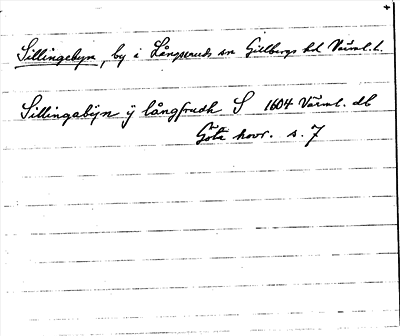 Sillingebyn, by i Långseruds sn Gillbergs hd Värml. l.
Sillingabÿn ÿ långsrudh S 1604 Värml. db
Göta hovr. s. 7